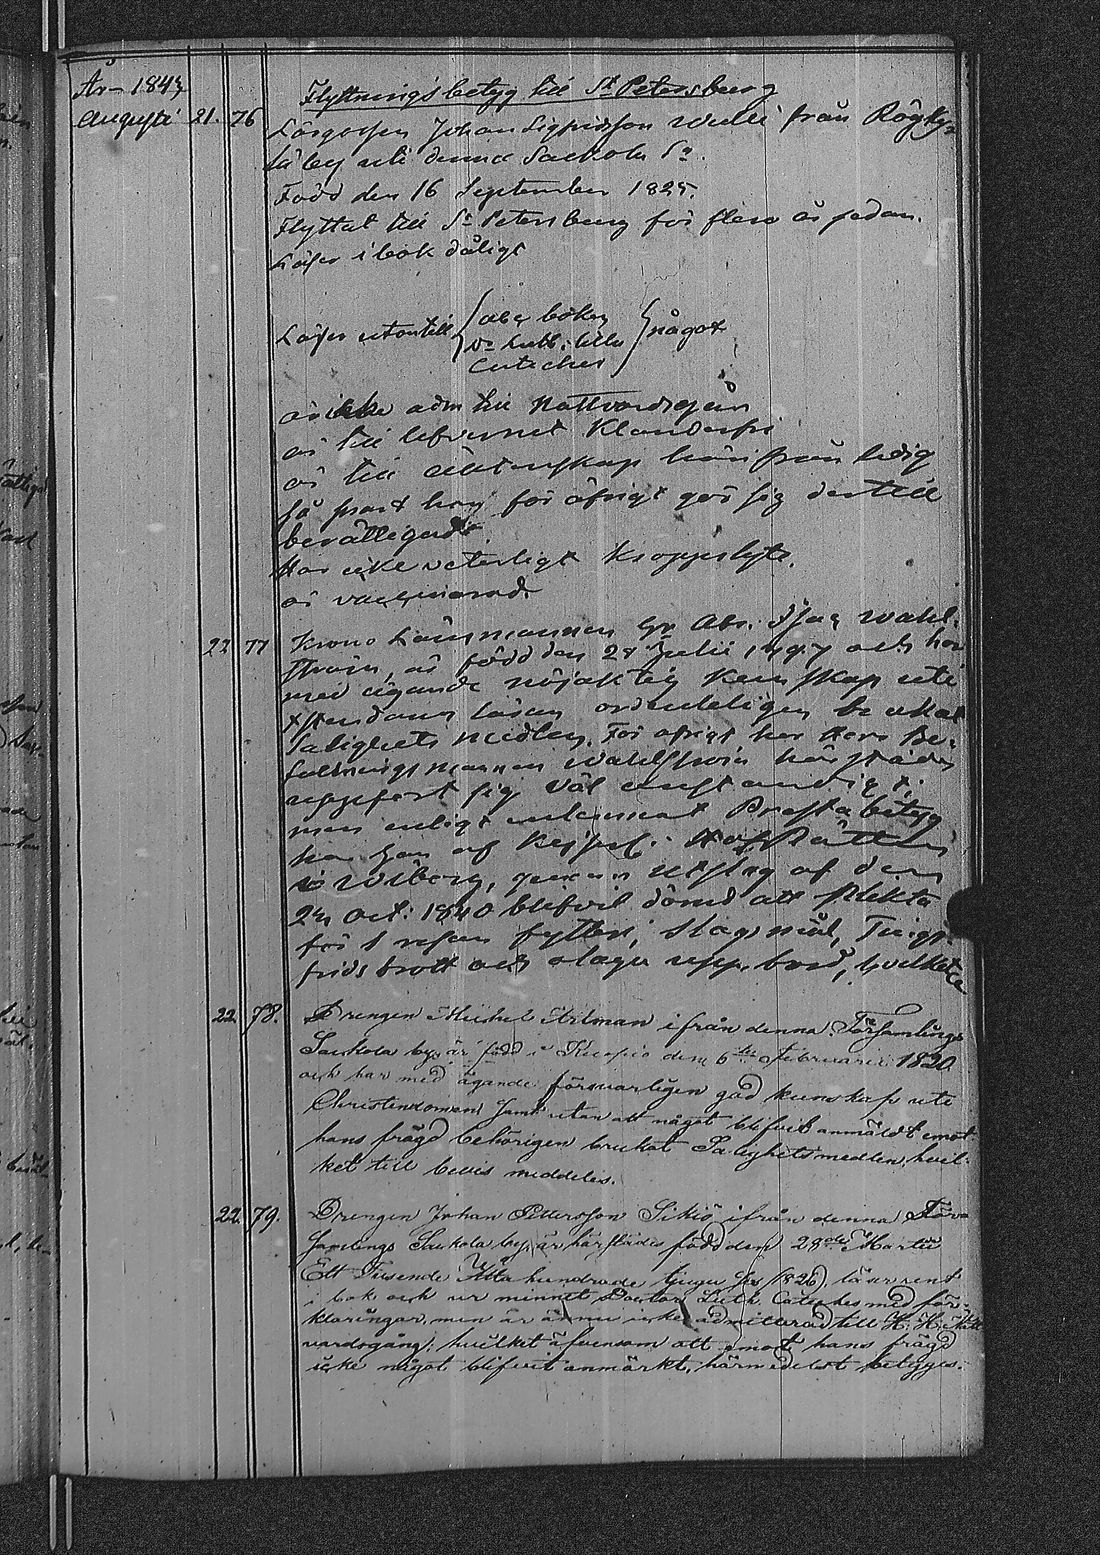 År 1843 Flyttnings betyg till St Petersburg
Augusti 21. 76 Lärgossen Johan Sigfridsson Wulli från
la by uti denna Sackola Sn.
Född den 16 September 1825.
Flyttat till St Petersburg för flera år sedan.
Läser i bok dåligt
Läser utantill abc boken
Dr Luth: lilla något
Cateches
är icke adm till Nattvardsgån
är till lefvernet Klanderfri
är till äktenskap härifrån ledig
så snart han för öfrigt gör sig dertill
berättigad.
Har icke veterligt Kroppslyte.
är vaccinerad.
22. 77 Krono Länsmannen Abr. Isac Wahl-
ström, är född den 28 Julii 1797 och har
med egande nöjaktig Kunskap uti
Xstendoms läran ordenteligen brukat
Salighets medlen. För öfrigt har Herr Be-
fallningsmannen Wahlström härstädes
uppfört sig väl och anständigt;
men enligt inlemnat Prestabetyg
har han af Kejserl: HofRätten
i Wiborg, genom Utslag af den
Oct: 1840 blifvit dömd att plikta
för 1 resan fylleri, slagsmål, Tings
frids brott och olaga, hvilket
22. 78. Drengen Michel Artman ifrån denna Församlings
Sackola by, är född i Kuopio den 6te Februarii 1820
och har med ägande försvarligen god kunskap uti
Christendomen samt utan att något blifvit anmäldt emot
hans frägd behörigen brukat Salighetsmedlen, hvil-
ket till bevis meddeles.
22. 79. Drengen Johan Pettersson Sikiö ifrån denna För-
samlings Sackola by, är härstädes född den 28de Martii
Ett Tusende Åtta hundrade tjugu sex (1826), läser rent
i bok och ur minnet Doctor Luth. Cateches med för-
klaringar, men är ännu icke admitterad till H. H. Natt-
vardsgång; hvilket äfvensom att emot hans frägd
icke något blifvit anmärkt, härmedelst betygas.